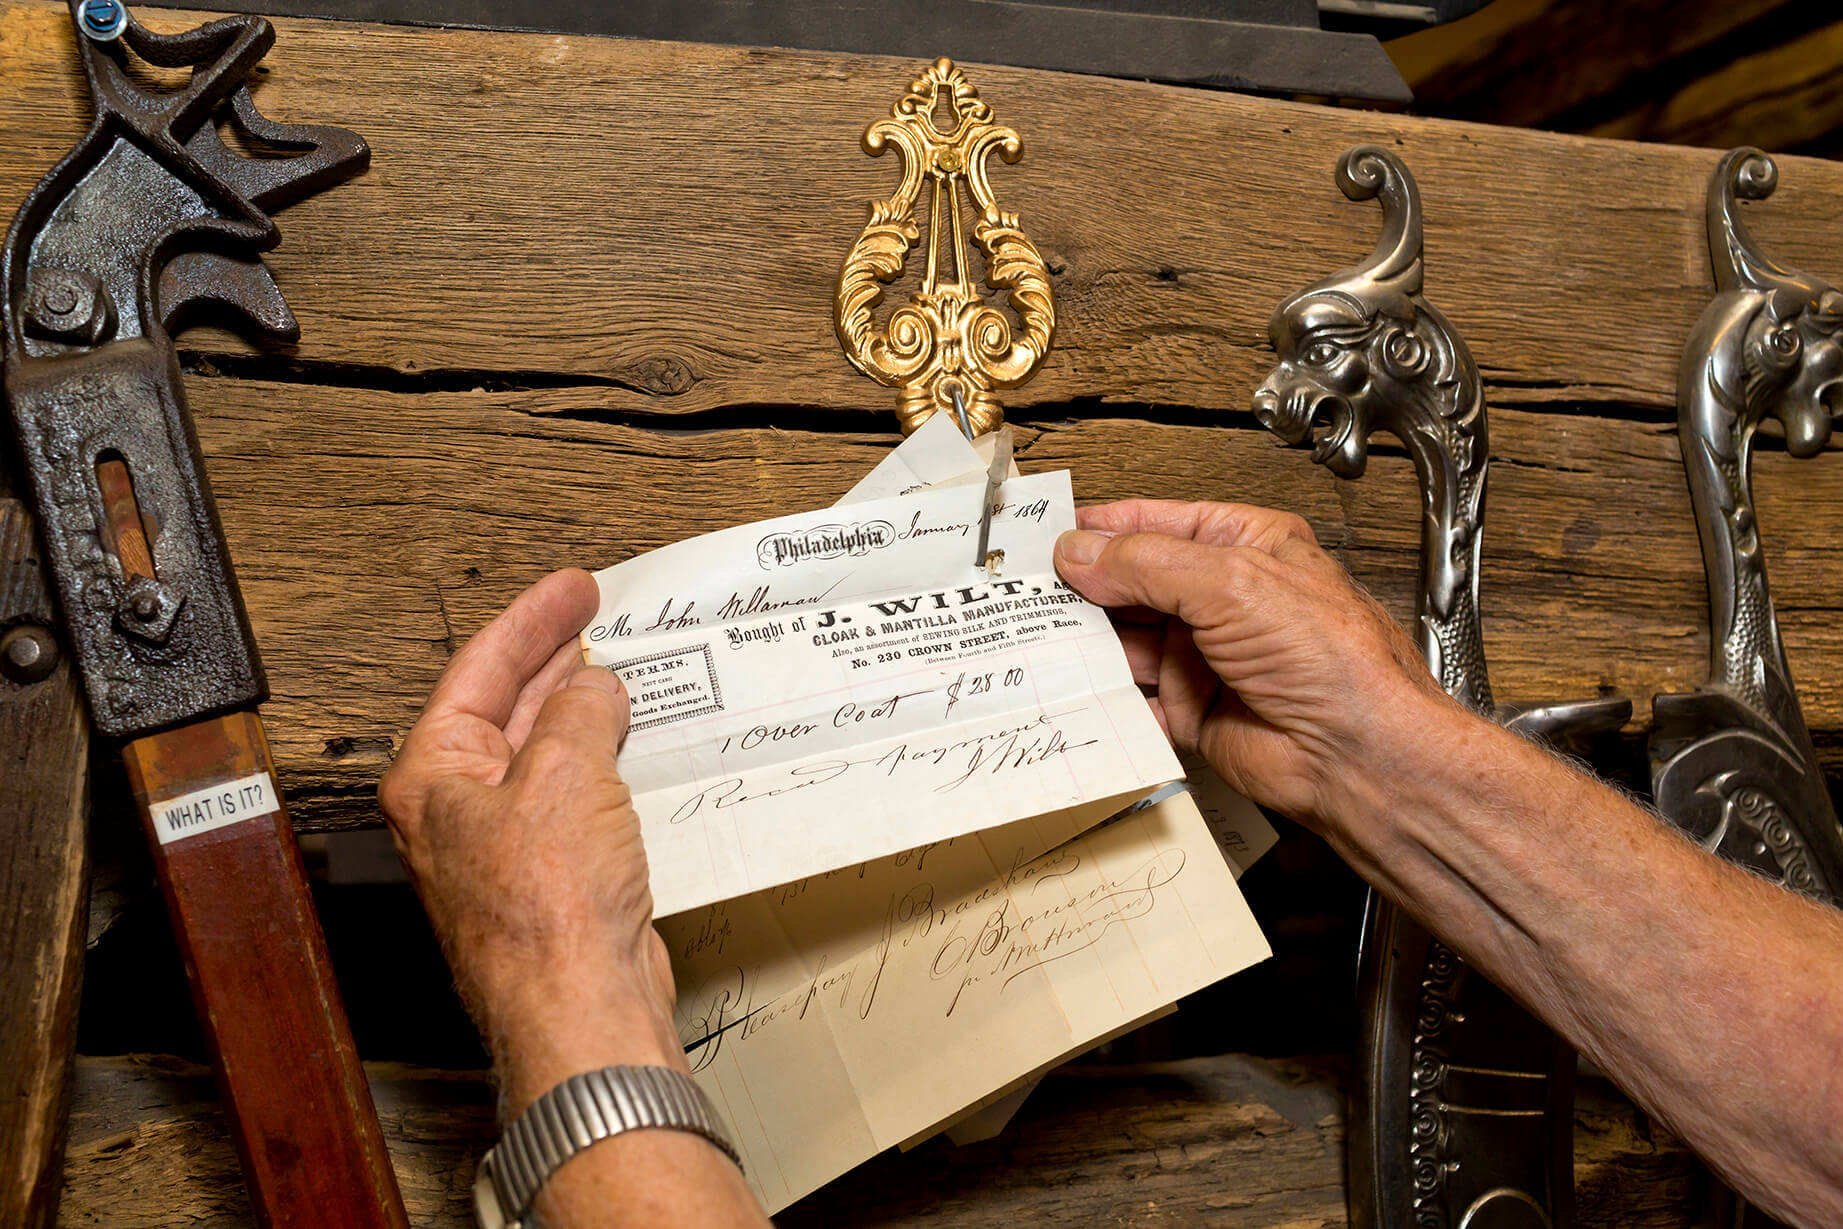 Philadelphia January 1st 1864
Mr John
Bought of J. WILT,
CLOAK & MANTILLA MANUFACTURER,
Also, an assortment of SEWING SILK AND TRIMMINGS,
No. 230 CROWN STREET, above Race,
(Between Fourth and Fifth Streets.)
TERMS,
NETT CASH
N DELIVERY,
Goods Exchanged.
1 Over Coat $28 00
Recd payment
J Wilt
Please pay J Bradshaw
C Bronson
WHAT IS IT?